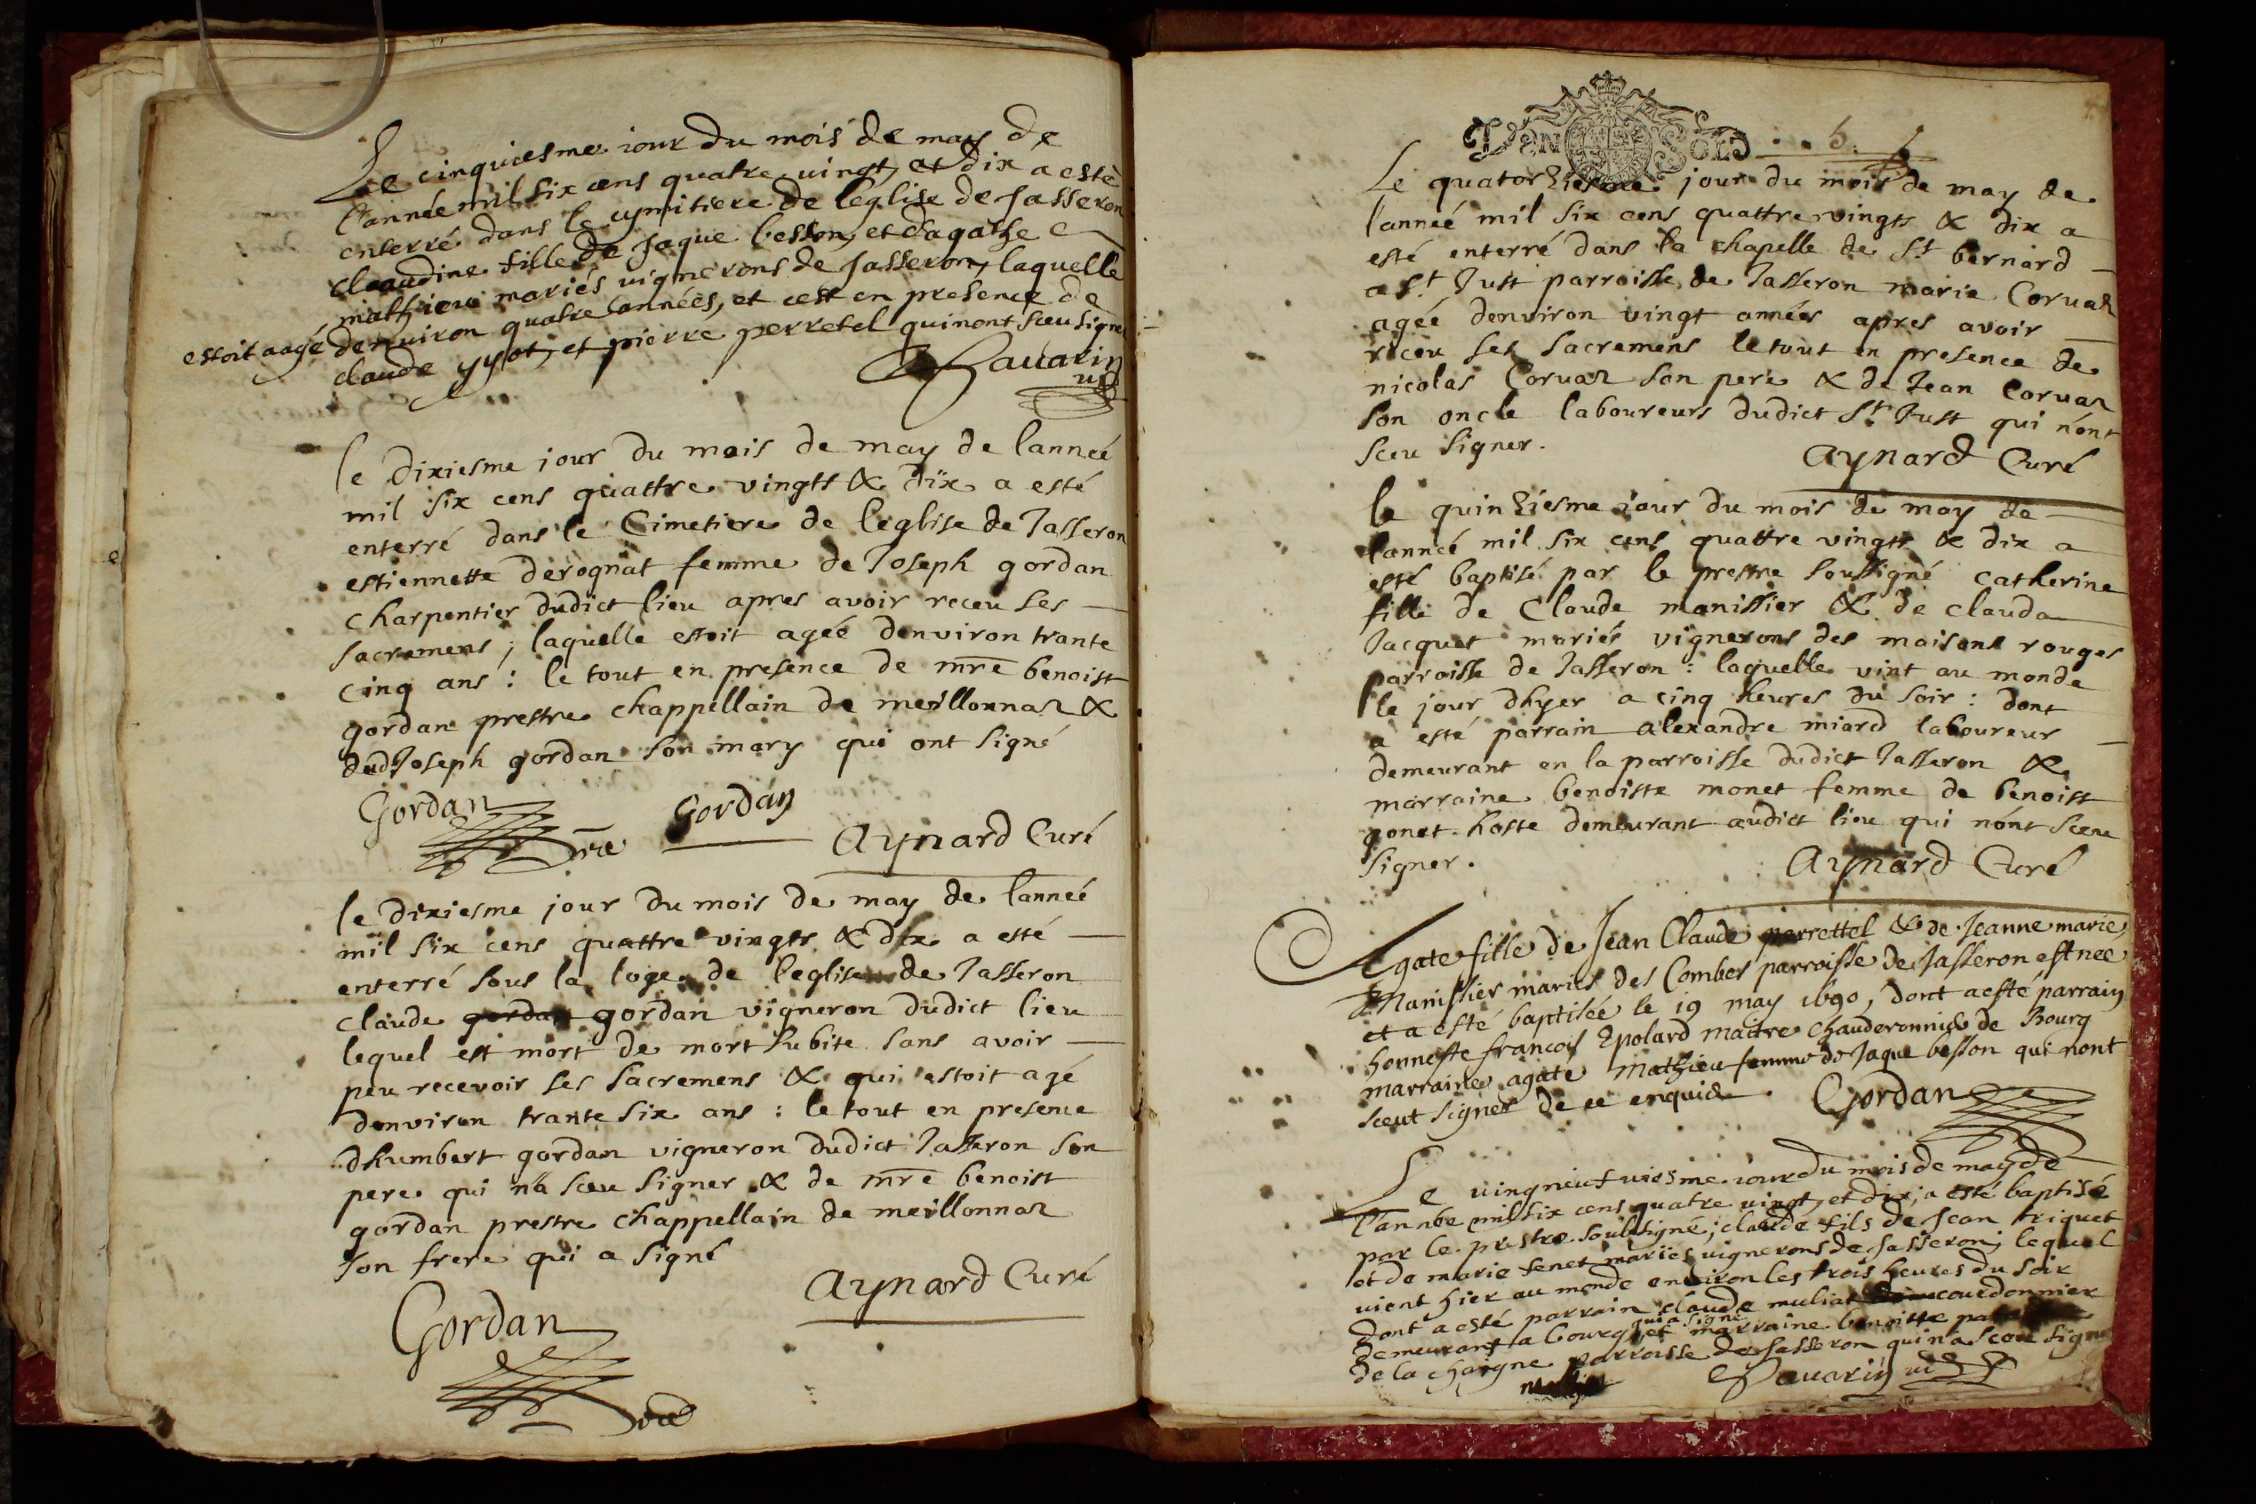 Le cinquiesme iour du mois de may de
l'année mil six cens quatre vingt, et dix a esté
enterré dans le cymitiere de leglise de Jasseron
claudine fille de Jaque besson, et dagathe
mathieu mariés vignerons de Jasseron, laquelle
estoit aagé denuiron quatre années, et cest en presence de
claude yyot, et pierre perretel quinont sceu signer
Sauarin
le dixiesme jour du mois de may de lanneé
mil six cens quattre vingts & dix a esté
enterré dans le Cimetiere de leglise de Jasseron
estiennette derognat femme de Joseph gordan
charpentier dudict lieu apres avoir receu ses
sacremens ; laquelle estoit ageé denviron trante
cinq ans : le tout en presence de mre benoist
gordan prestre chappellain de meillonnaz &
dudt Joseph gordan son mary qui ont signé
Gordan Gordan
Aynard Curé
le dixiesme jour du mois de may de lanneé
mil six cens quattre vingts & dix a esté
enterré sous la loge de leglise de Jasseron
claude gordan gordan vigneron dudict lieu
lequel est mort de mort subite sans avoir
peu recevoir ses sacremens & qui estoit agé
denviron trante six ans : le tout en presence
dhumbert gordan vigneron dudict Jasseron son
pere qui n'a sceu signer & de mre benoist
gordan prestre chappellain de meillonnaz
son frere qui a signé
Aynard Curé
Gordan
DEN SOLD
Le quatorziesme jour du mois de may de
lanneé mil six cens quattre vingts & dix a
esté enterré dans la chapelle de St bernard
a St Just parroisse de Jasseron marie Corvaz
ageé denviron vingt années apres avoir
receu ses sacremens le tout en presence de
nicolas Corvaz son pere & de Jean Corvaz
son oncle laboureurs dudict St Just qui nont
sceu signer.
Aynard Curé
le quinziesme jour du mois de may de
lanneé mil six cens quattre vingts & dix a
esté baptisé par le prestre soussigné catherine
fille de Claude manissier & de clauda
Jacquet mariés vignerons des maisons rouges
parroisse de Jasseron : laquelle vint au monde
le jour dhyer a cinq heures du soir : dont
a esté parrain alexandre miard laboureur
demeurant en la parroisse dudict Jasseron &
marraine benoiste monet femme de benoist
gonet hoste demeurant audict lieu qui nont sceu
signer.
Aynard Curé
Agate fille de Jean Claude perrettel & de Jeanne marie
Manissier mariés des Combes parroisse de Jasseron est née
et a esté baptisée le 19 may 1690, dont a esté parrain
honneste francois Epolard maitre chauderonnier de Bourg
marraine agate Mathieu femme de Jaque besson qui nont
sceut signer de ce enquis
Gordan
Le vingneufviesme iour du mois de may de
l'année mil six cens quatre vingt, et dix, a esté baptisé
par le prestre soubsigné ; claude fils de Jean triquet
et de marie tenet mariés vignerons de Jasseron, lequel
vient hier au monde enuiron les trois heures du soir
dont a esté parrain claude muliat courdonnier
qui a signé
demeurant a bourg, et marraine benoitte
de la chaigne parroisse de Jasseron qui n'a sceu signer
Sauarin